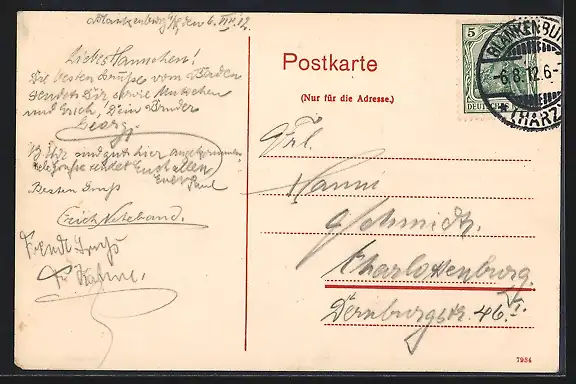 Blankenburg a/H, den 6. VIII. 12.
Liebes Hannchen!
Die besten Grüße vom Baden
sendet Dir, sowie Mutchen
und Erich, Dein Bruder
Georg.
sind gut hier angekommen
sendet Euch allen
Euer Paul
Besten Gruß
Erich
Postkarte
(Nur für die Adresse.)
Frl.
Hanni
Schmidt
Charlottenburg
Dernburgstr. 46. II.
5
DEUTSCHES
BLANKENBURG
-6.8.12.6-7
(HARZ)
7934